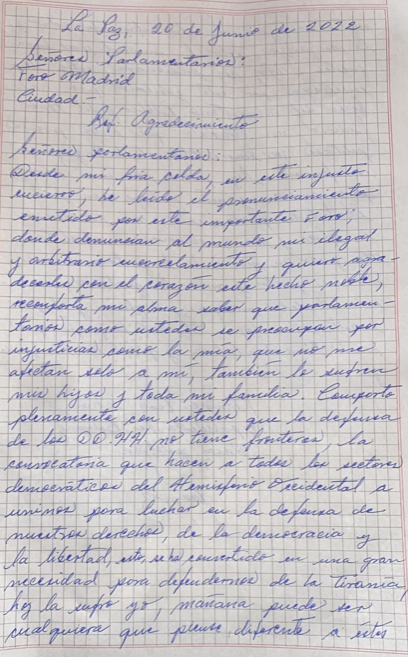 La Paz, 20 de Junio de 2022
Señores Parlamentarios:
Foro Madrid
Ciudad -
Ref. Agradecimiento
Señores parlamentarios:
Desde mi fria celda, en este injusto
encierro, he leído el pronunciamiento
emitido por este importante Foro;
donde denuncian al mundo mi ilegal
y arbitrario encarcelamiento y quiero agra-
decerles con el corazón este hecho noble,
reconforta mi alma saber que parlamen-
tarios como ustedes se preocupan por
injusticias como la mia, que no me
afectan solo a mí, también lo sufren
mis hijos y toda mi familia. Comparto
plenamente con ustedes que la defensa
de los DD.HH. no tiene fronteras, la
convocatoria que hacen a todos los sectores
democráticos del Hemisferio Occidental a
unirnos para luchar en la defensa de
nuestros derechos, de la democracia y
la libertad, esto, se ha convertido en una gran
necesidad para defendernos de la tiranía,
hoy la sufro yo, mañana puede ser
cualquiera que piense diferente a estos